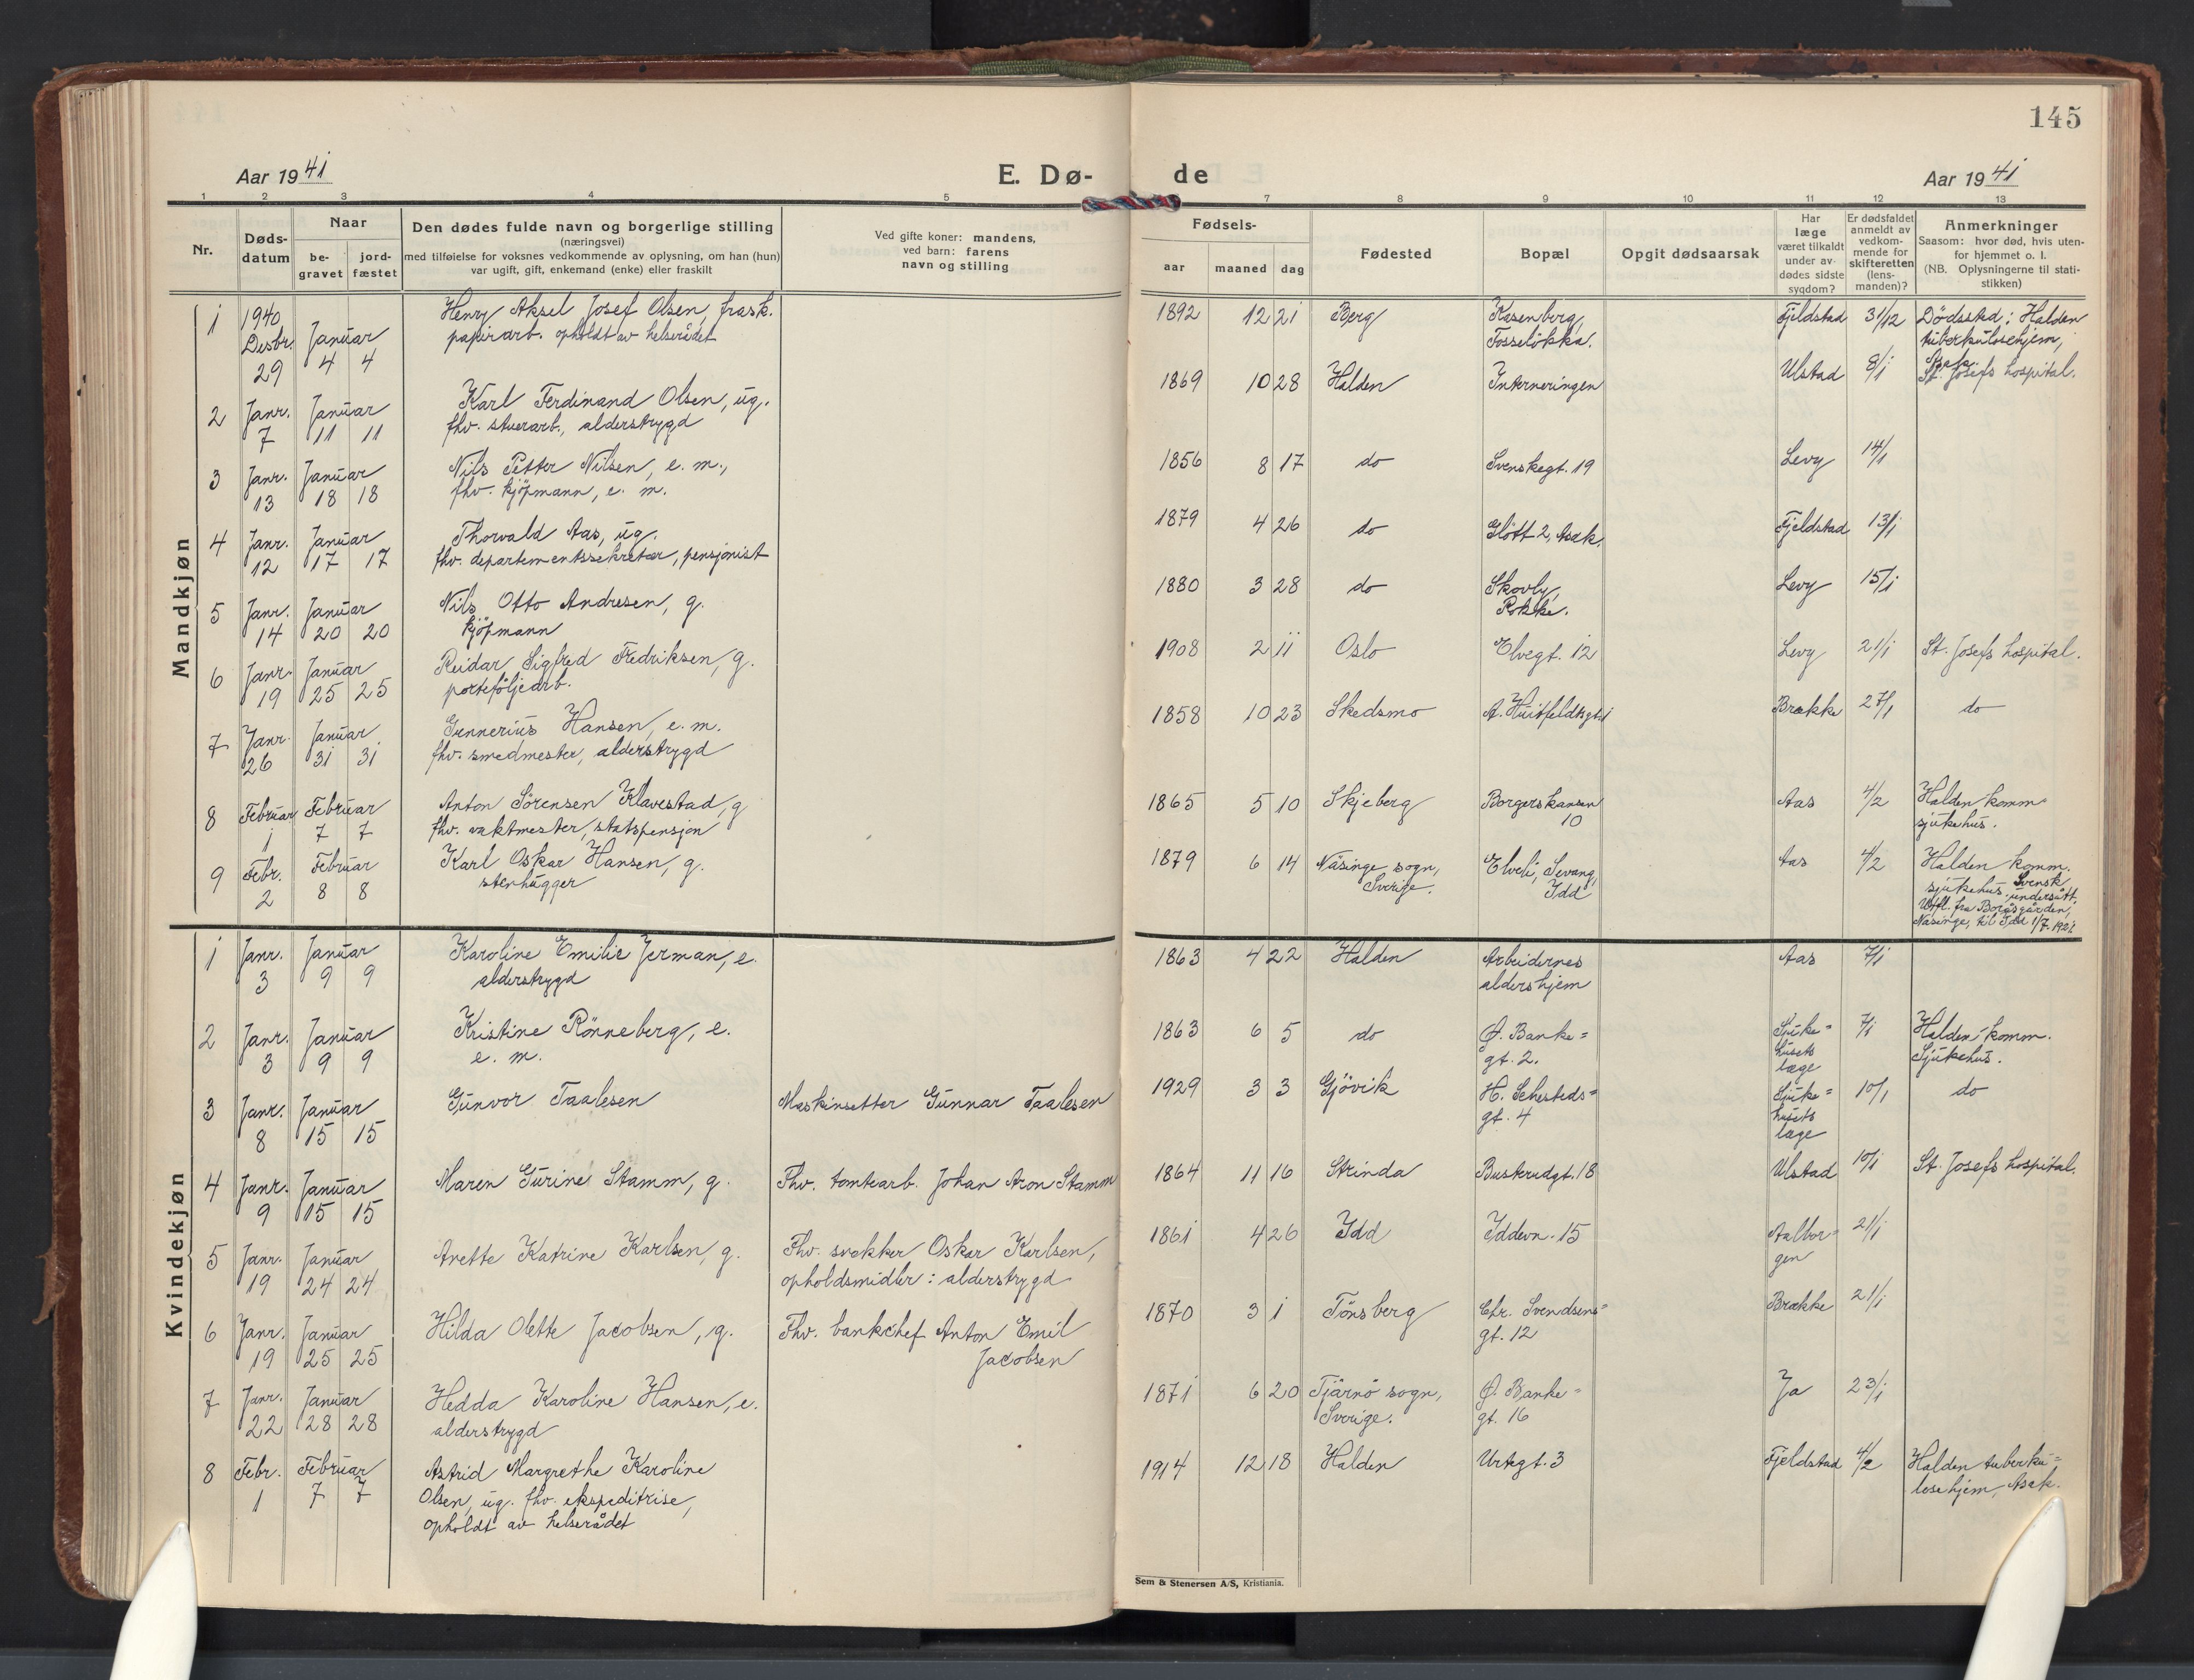 145
Aar 1941
E. Dø-
de
Aar 1941
1 2 3 4 5 7 8 9 10 11 12 13
Nr.
Døds-
datum
Naar
be-
gravet
jord-
fæstet
Den dødes fulde navn og borgerlige stilling
(næringsvei)
med tilføielse for voksnes vedkommende av oplysning, om han (hun)
var ugift, gift, enkemand (enke) eller fraskilt
Ved gifte koner: mandens,
ved barn: farens
navn og stilling
Fødsels-
aar maaned dag
Fødested
Bopæl
Opgit dødsaarsak
Har
læge
været tilkaldt
under av-
dødes sidste
sygdom?
Er dødsfaldet
anmeldt av
vedkom-
mende for
skifteretten
(lens-
manden)?
Anmerkninger
Saasom: hvor død, hvis uten-
for hjemmet o. l.
(NB. Oplysningerne til stati-
stikken)
Mandkjøn
1 1940 Henry Aksel Josef Olsen, frask. 1892 12 21 Berg Fjeldstad 31/12 Dödssted: Halden
Desbr. Januar papirarb. opholdt av helserådet Fosselökka. tuberkulosehjem,
29 4 4 Asak.
2 Janr. Januar Karl Ferdinand Olsen, ug. 1869 10 28 Halden Interneringen Ulstad 8/1 St. Josefs hospital.
7 11 11 fhv. stuerarb., alderstrygd
3 Janr. Januar Nils Petter Nilsen, e. m., 1856 8 17 do Svenskegt. 19 Levy 14/1
13 18 18 fhv. kjöpmann, e. m.
4 Janr. Januar Thorvald Aas, ug. 1879 4 26 do Glött 2, Asak. Fjeldstad 13/1
12 17 17 fhv. departementssekretær, pensjonist
5 Janr. Januar Nils Otto Andresen, g. 1880 3 28 do Skovly, Levy 15/1
14 20 20 kjöpmann Rokke.
6 Janr. Januar Reidar Sigfred Fredriksen, g. 1908 2 11 Oslo Elvegt. 12 Levy 21/1 St. Josefs hospital.
19 25 25 porteföljearb.
7 Janr. Januar Gunnerius Hansen, e. m. 1858 10 23 Skedsmo A. Huitfeldtsgt. 1 Brække 27/1 do
26 31 31 fhv. smedmester, alderstrygd
8 Februar Februar Anton Sörensen Klavestad, g 1865 5 10 Skjeberg Borgerskansen Aas 4/2 Halden komm.
1 7 7 fhv. vaktmester, statspensjon 10 sjukehus.
9 Febr. Februar Karl Oskar Hansen, g. 1879 6 14 Näsinge sogn, Elveli, Sevang, Aas 4/2 Halden komm.
2 8 8 stenhugger Sverige. Idd sjukehus. Svensk
undersått.
Utfl. fra Boråsgården,
Näsinge, til Idd 1/7.
Kvindekjøn
1 Janr. Januar Karoline Emilie Jerman, e. 1863 4 22 Halden Arbeidernes Aas 7/1
3 9 9 alderstrygd aldershjem
2 Janr. Januar Kristine Rönneberg, e. 1863 6 5 do O. Banke= Sjuke= 7/1 Halden komm.
3 9 9 e. m. gt. 2. husets Sjukehus.
læge
3 Janr. Januar Gunvor Taalesen Maskinsetter Gunnar Taalesen 1929 3 3 Gjövik H. Sehesteds= Sjuke= 10/1 do
8 15 15 gt. 4 husets
læge
4 Janr. Januar Maren Gurine Stamm, g. Fhv. tomtearb. Johan Aron Stamm 1864 11 16 Strinda Buskrudgt. 18 Ulstad 10/1 St. Josefs hospital.
9 15 15
5 Janr. Januar Anette Katrine Karlsen, g. Fhv. snekker Oskar Karlsen, 1861 4 26 Idd Iddevn. 15 Aalbor- 21/1
19 24 24 opholdsmidler: alderstrygd gen
6 Janr. Januar Hilda Olette Jacobsen, g. Fhv. bankchef Anton Emil 1870 3 1 Tönsberg Chr. Svendsens= Brække 21/1
19 25 25 Jacobsen gt. 12
7 Janr. Januar Hedda Karoline Hansen, e. 1871 6 20 Tjärnö sogn, O. Banke= Ja 23/1
22 28 28 alderstrygd Sverige. gt. 16
8 Febr. Februar Astrid Margrethe Karoline 1914 12 18 Halden Urtegt. 3 Fjeldstad 4/2 Halden tuberku=
1 7 7 Olsen, ug. fhv. ekspeditrise, losehjem, Asak.
opholdt av helserådet
Sem & Stenersen A/S, Kristiania.